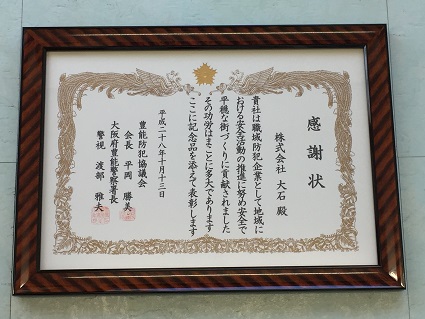 感謝状
株式会社 大石 殿
貴社は職域防犯企業として地域に
おける安全活動の推進に努め安全で
平穏な街づくりに貢献されました
その功労はまことに多大であります
ここに記念品を添えて表彰します
平成二十八年十月十三日
豊能防犯協議会
会長 平岡 勝美
大阪府豊能警察署長
警視 渡部 雅夫